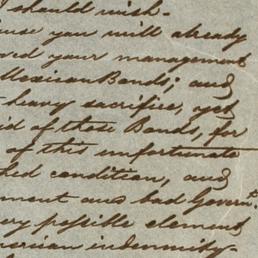 I should wish.
you will already
your management
Mexican Bonds; and
heavy sacrifice, get
of these Bonds, for
of this unfortunate
condition, and
and bad Governt.
possible element
indemnity-